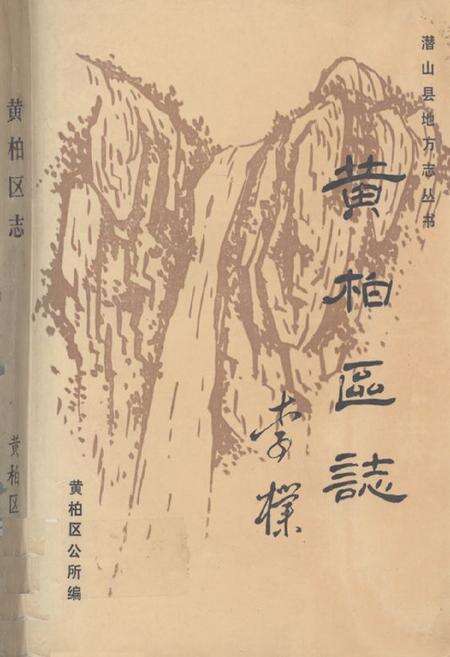 潜山县地方志丛书
黄柏區誌
李
黄柏区公所编
黄柏区志
黄柏区